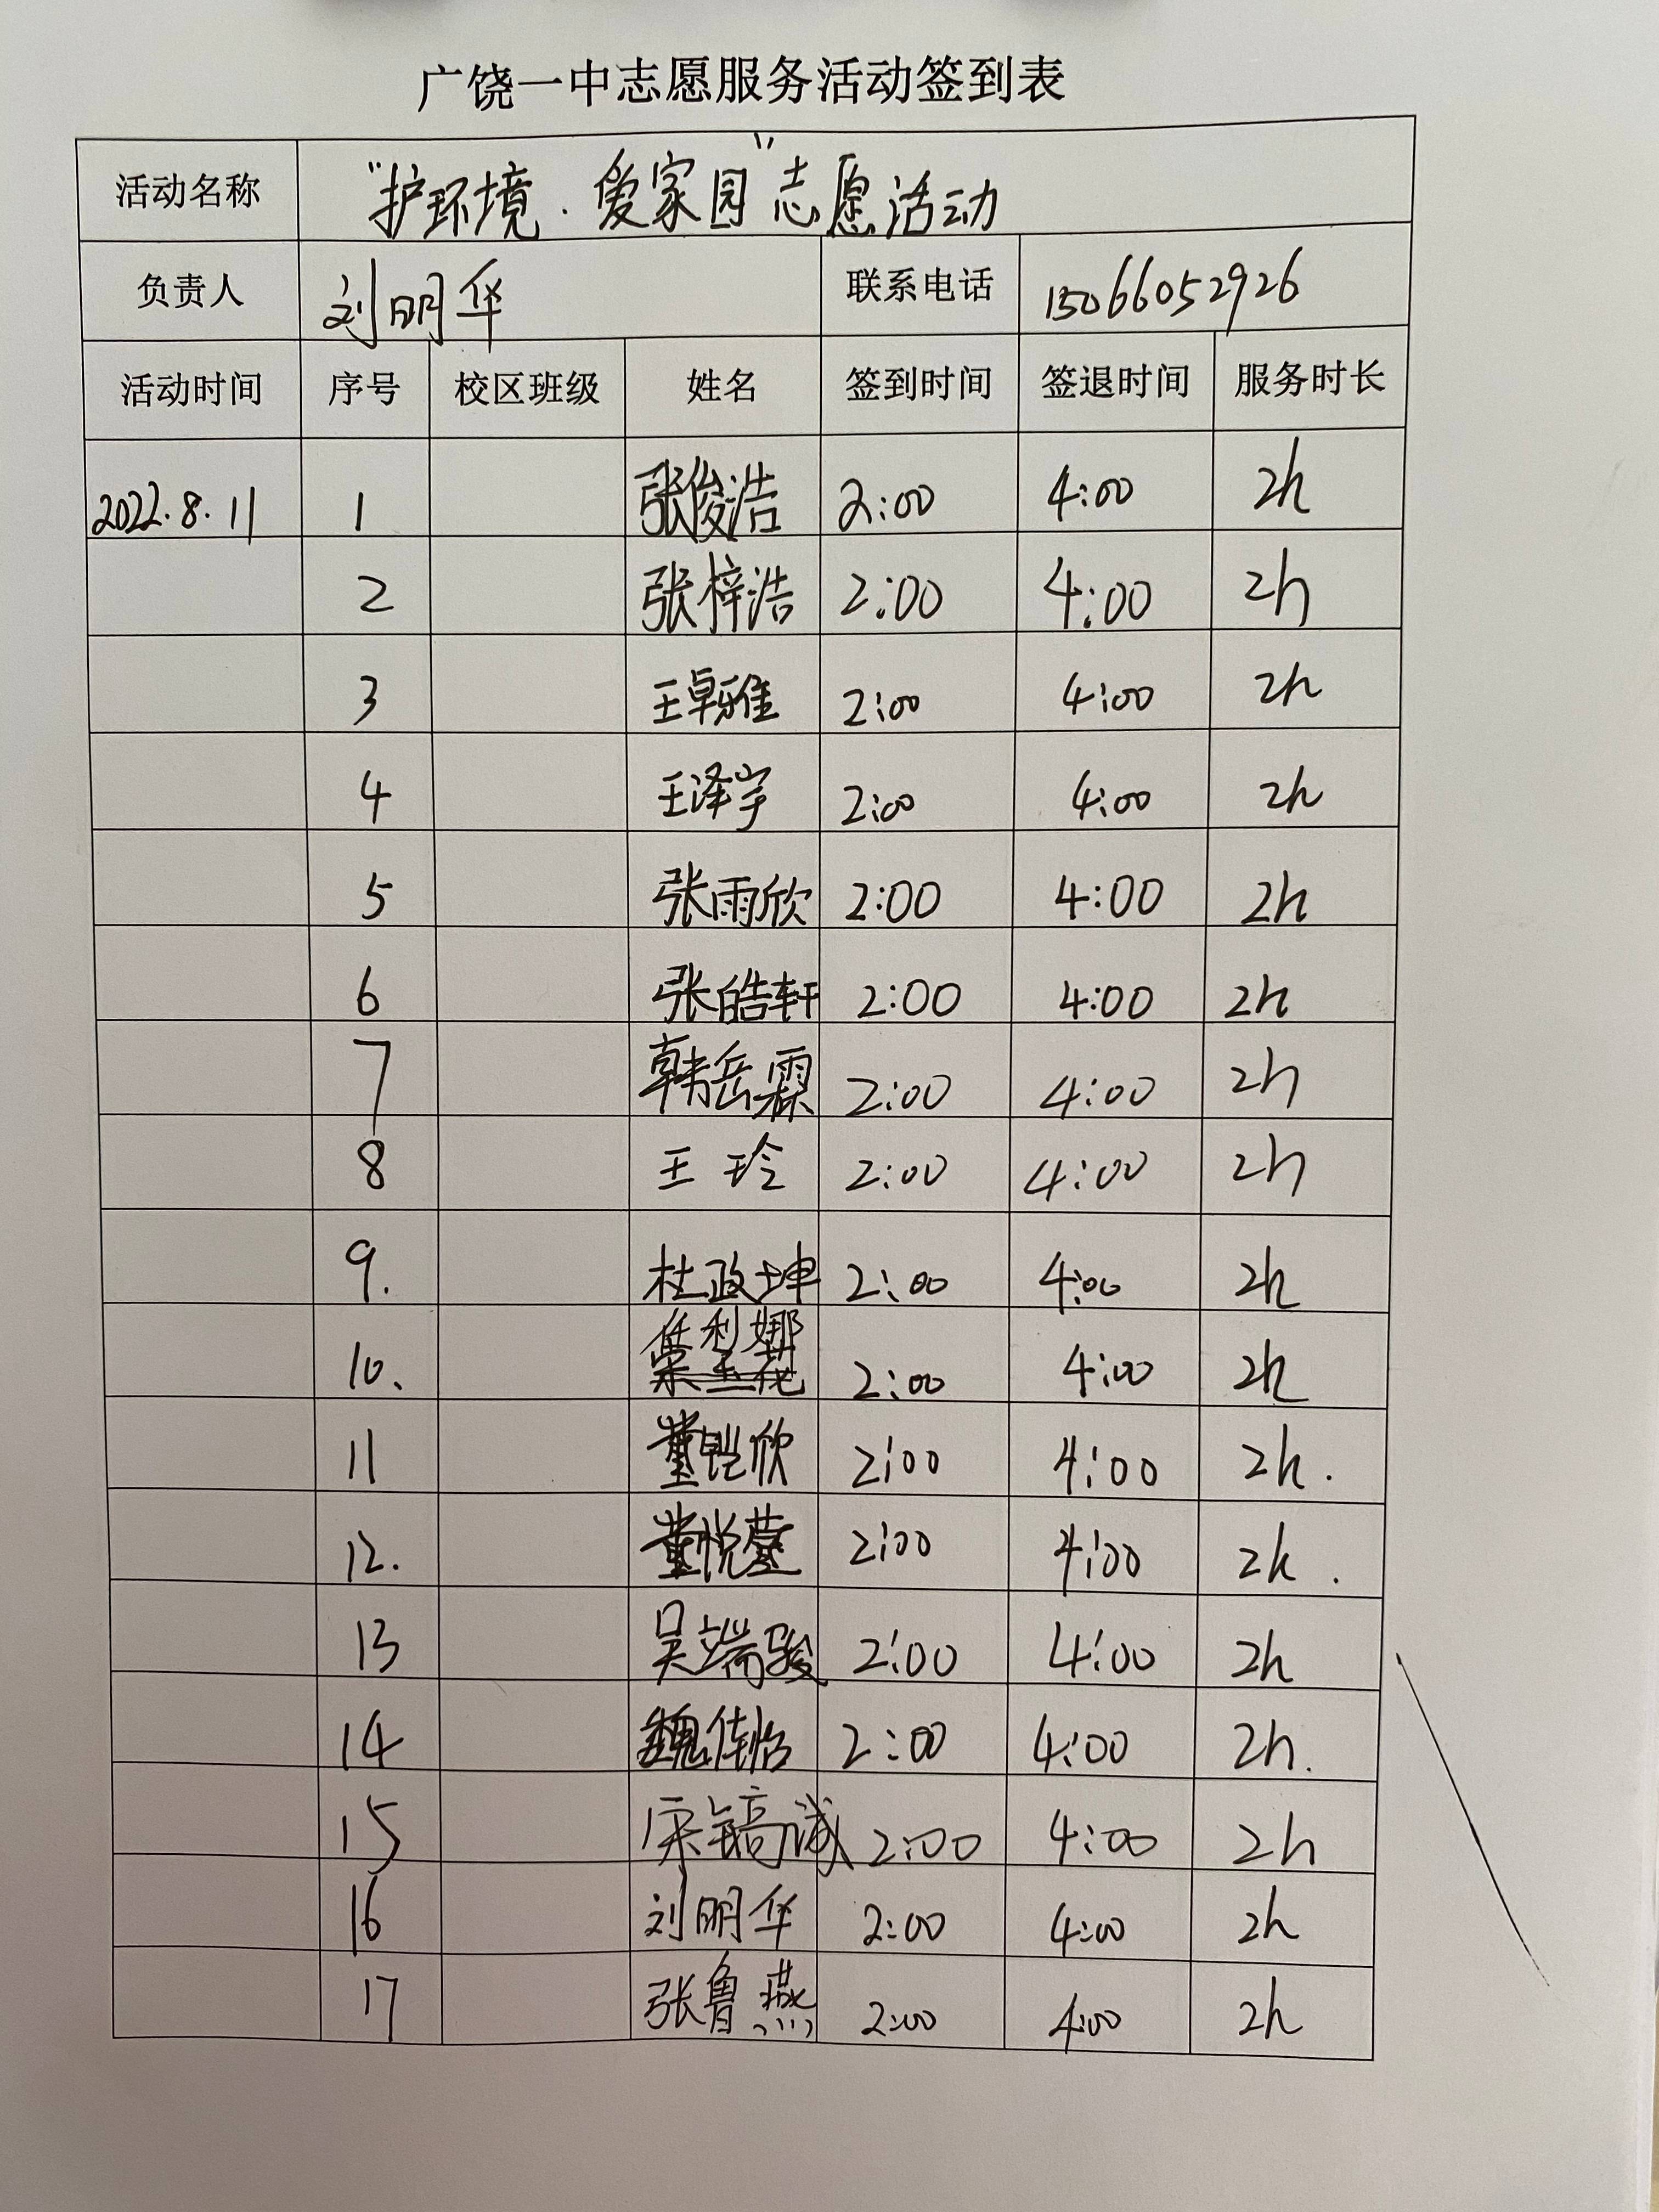 广饶一中志愿服务活动签到表
活动名称 "护环境．爱家园"志愿活动
负责人 刘明华 联系电话 15066052926
活动时间 序号 校区班级 姓名 签到时间 签退时间 服务时长
2022.8.11 1 张俊浩 2:00 4:00 2h
2 张梓浩 2:00 4:00 2h
3 王卓雅 2:00 4:00 2h
4 王泽宇 2:00 4:00 2h
5 张雨欣 2:00 4:00 2h
6 张皓轩 2:00 4:00 2h
7 韩岳霖 2:00 4:00 2h
8 王玲 2:00 4:00 2h
9. 杜政坤 2:00 4:00 2h
10. 2:00 4:00 2h
11 董铠欣 2:00 4:00 2h.
12. 2:00 4:00 2h.
13 吴端骏 2:00 4:00 2h
14 魏佳怡 2:00 4:00 2h.
15 宋镐诚 2:00 4:00 2h
16 刘明华 2:00 4:00 2h
17 张鲁燕 2:00 4:00 2h